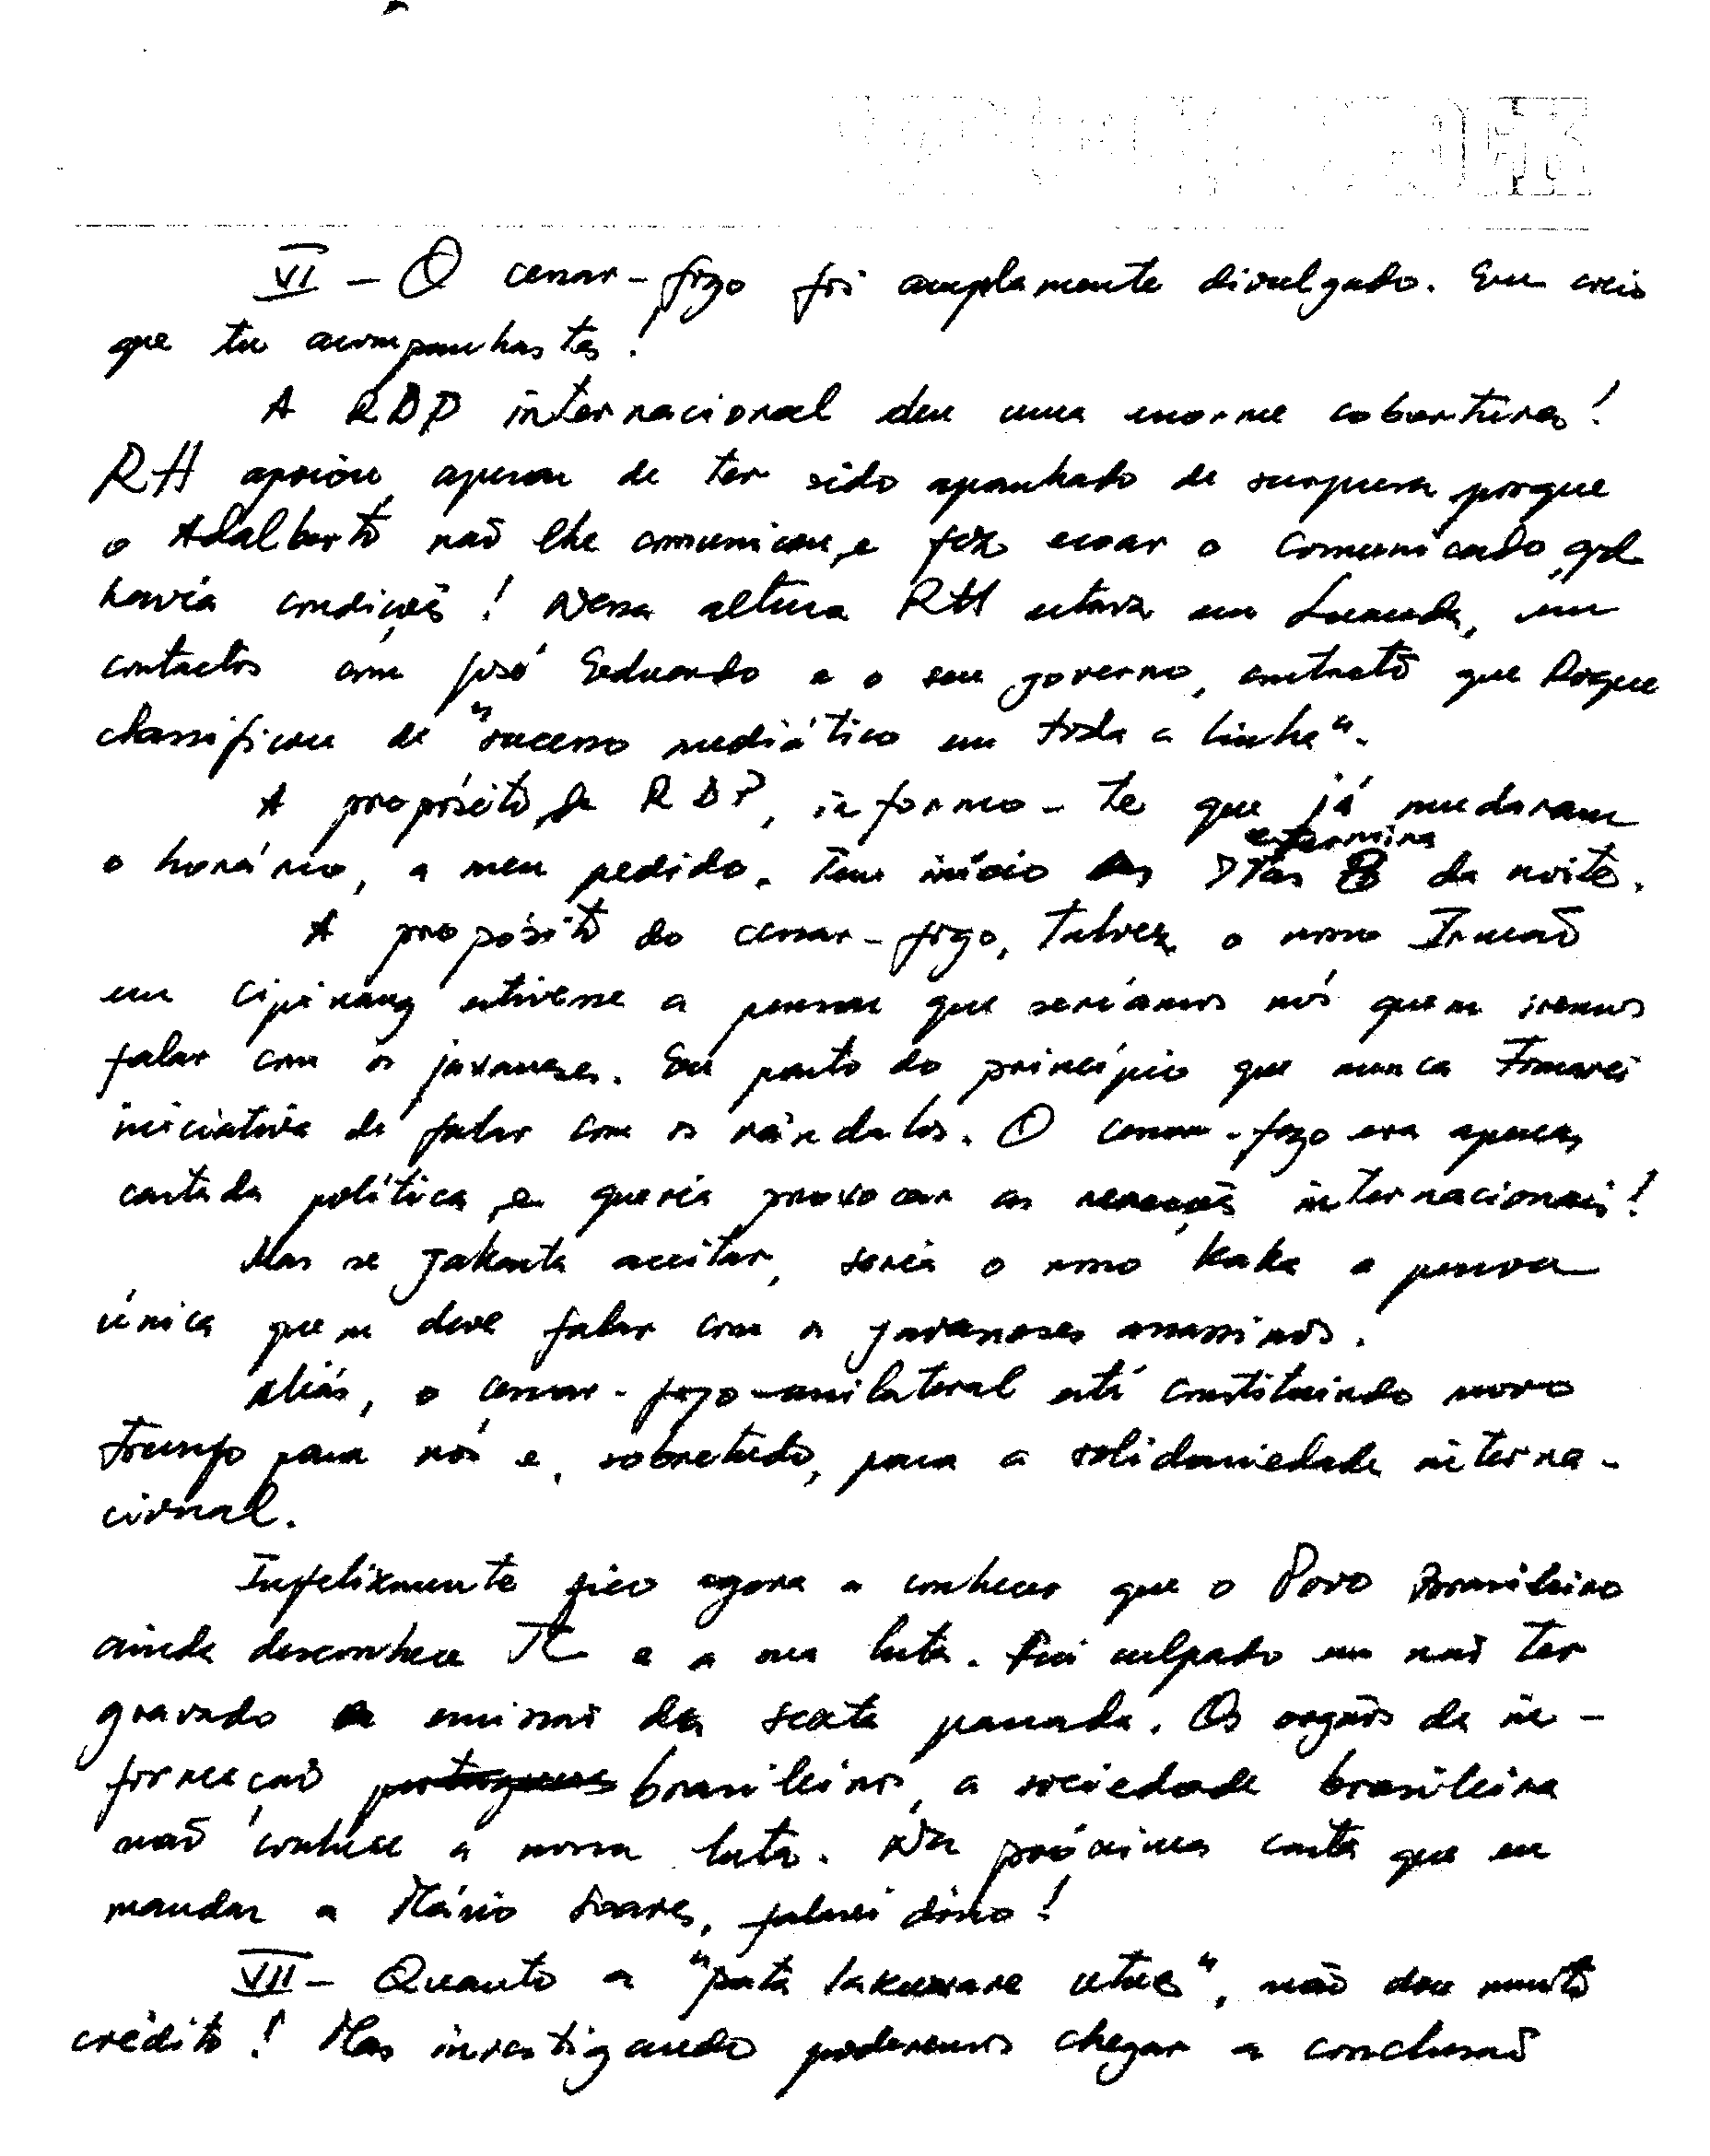 VI - O cessar-fogo foi amplamente divulgado. Eu creio
que tu acompanhastes!
A RDP internacional deu uma enorme cobertura!
RH apoiou, apesar de ter sido apanhado de surpresa porque
o Adalberto não lhe comunicou, e fez ecoar o comunicado, qd
havia condições! Nessa altura RH estava em Luanda, em
contactos com José Eduardo e o seu governo, contacto que Roque
classificou de "sucesso mediático em toda a linha".
A propósito da RDP, informo-te que já mudaram
o horário, a meu pedido. Tem início às e termina 8 da noite.
A propósito do cessar-fogo, talvez o nosso Irmão
em Cipinang estivesse a pensar que seríamos nós quem iremos
falar com os javaneses. Eu parto do princípio que nunca tomarei
iniciativa de falar com os vândalos. O cessar-fogo era apenas
cartada política, e queria provocar as reacções internacionais!
Mas se Jakarta aceitar, seria o nosso Kaka a pessoa
única quem deve falar com os javaneses assassinos.
Aliás, o cessar-fogo-unilateral está constituindo novo
trunfo para nós e, sobretudo, para a solidariedade interna-
cional.
Infelizmente fico agora a conhecer que o Povo Brasileiro
ainda desconhece TL e a sua luta. Fui culpado em não ter
gravado a emissão da sexta passada. Os orgãos da in-
formação brasileiros, a sociedade brasileira
não conhece a nossa luta. Na próxima carta que eu
mandar a Mário Soares, falarei disso!
VII - Quanto a "pata", não dou muito
crédito! Mas investigando poderemos chegar a conclusão